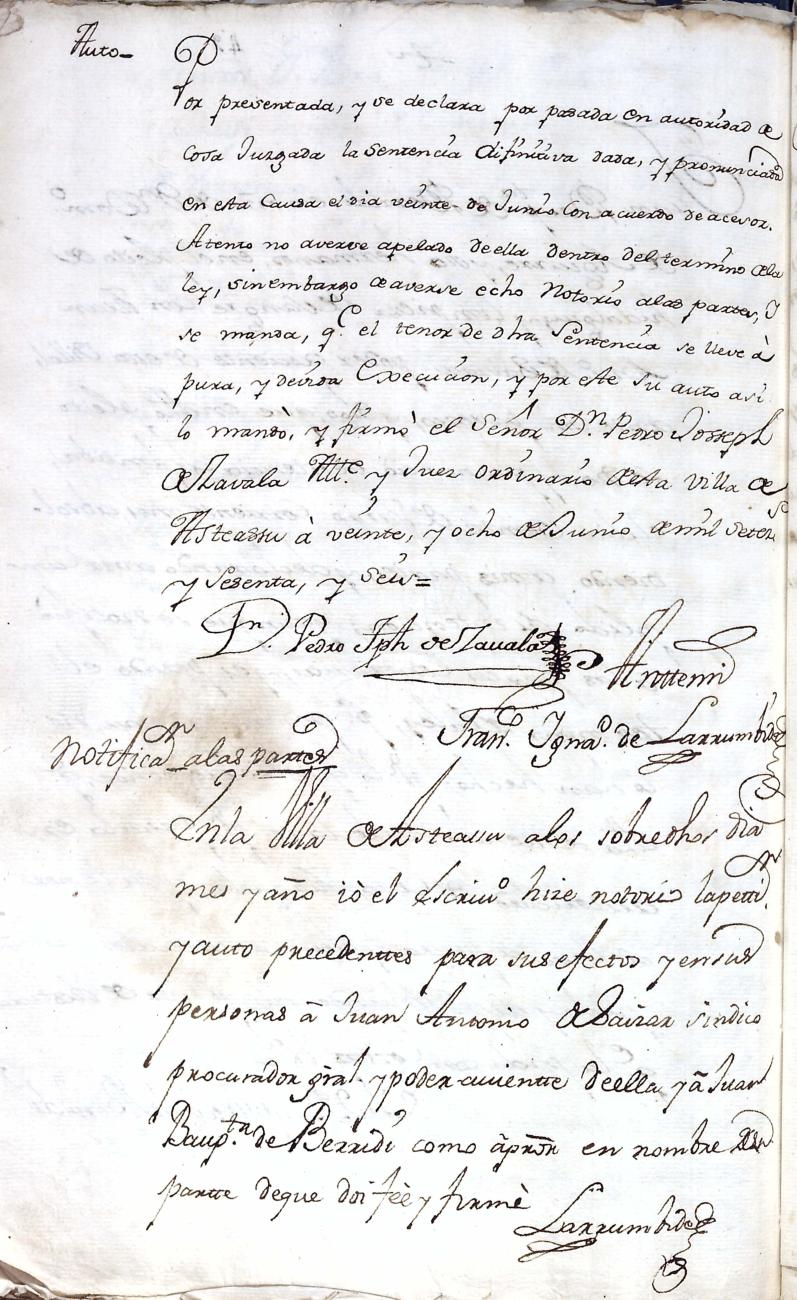 Auto-
Por presentada, y se declara por pasada en autoridad de
cosa Juzgada la Sentencia difinitiva dada, y pronunciada
en esta Causa el dia veinte de Junio. Con acuerdo de acesor.
Atento no averse apelado de ella dentro del termino de la
ley, sin embargo de averse echo Notorio a las partes, Y
se manda, qe el tenor de dha Sentencia se lleve à
pura, y devida Execucion, y por este su auto asi
lo mandò, y firmò el Señor Dn Pedro Joseph
de Zavala Allle y Juez ordinario de esta villa de
Asteassu à veinte, y ocho de Junio de mil setes
y Sesenta, y Seis=
Dn. Pedro Jph de Zavala
Anttemi
Fran.co Ignao. de Larrumbide
Notificaon a las partes
En la Villa de Asteassu a los sobredhos dia
mes y año iò el Escriuo hize notorio la pettion
y auto precedenttes para sus efectos y en sus
personas ā Juan Antonio de Baizar sindico
procurador gral. y poder auientte de ella y ā Juan
Baupta. de Berridi como āpror en nombre de su
partte de que doi fèe y firmè
Larrumbide